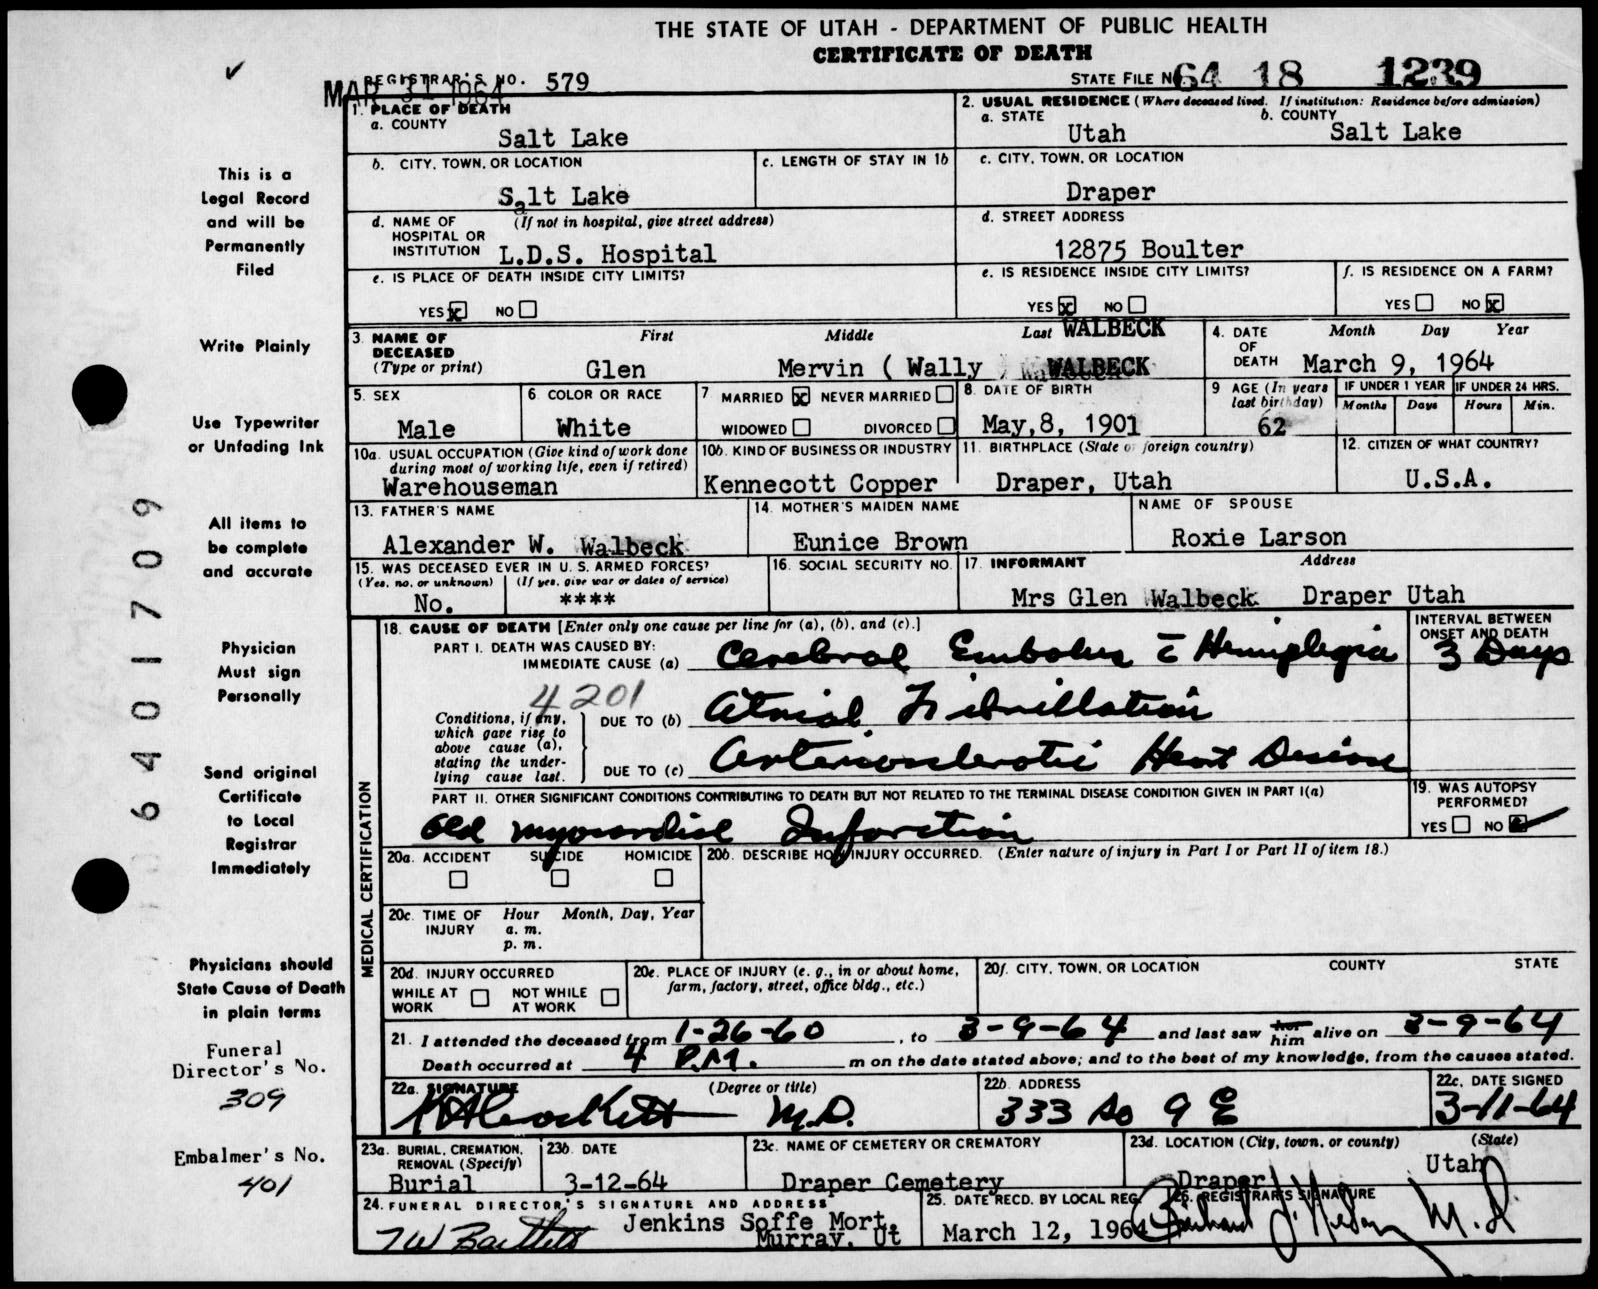 THE STATE OF UTAH - DEPARTMENT OF PUBLIC HEALTH
CERTIFICATE OF DEATH
REGISTRAR'S NO. 579
MAR 31 1964
STATE FILE NO 64 18 1239
1. PLACE OF DEATH
a. COUNTY
Salt Lake
2. USUAL RESIDENCE (Where deceased lived. If institution: Residence before admission)
a. STATE
Utah
b. COUNTY
Salt Lake
b. CITY, TOWN, OR LOCATION
Salt Lake
c. LENGTH OF STAY IN 1b
c. CITY, TOWN, OR LOCATION
Draper
d. NAME OF HOSPITAL OR INSTITUTION
(If not in hospital, give street address)
L.D.S. Hospital
d. STREET ADDRESS
12875 Boulter
e. IS PLACE OF DEATH INSIDE CITY LIMITS?
YES x NO
e. IS RESIDENCE INSIDE CITY LIMITS?
YES x NO
f. IS RESIDENCE ON A FARM?
YES NO x
3. NAME OF DECEASED
(Type or print)
First
Glen
Middle
Mervin ( Wally )
Last WALBECK
WALBECK
4. DATE OF DEATH
Month Day Year
March 9, 1964
5. SEX
Male
6. COLOR OR RACE
White
7 MARRIED x NEVER MARRIED
WIDOWED DIVORCED
8. DATE OF BIRTH
May,8, 1901
9 AGE (In years last birthday)
62
IF UNDER 1 YEAR
Months Days
IF UNDER 24 HRS.
Hours Min.
10a. USUAL OCCUPATION (Give kind of work done during most of working life, even if retired)
Warehouseman
10b. KIND OF BUSINESS OR INDUSTRY
Kennecott Copper
11. BIRTHPLACE (State or foreign country)
Draper, Utah
12. CITIZEN OF WHAT COUNTRY?
U.S.A.
13. FATHER'S NAME
Alexander W. Walbeck
14. MOTHER'S MAIDEN NAME
Eunice Brown
NAME OF SPOUSE
Roxie Larson
15. WAS DECEASED EVER IN U. S. ARMED FORCES?
(Yes, no, or unknown) (If yes, give war or dates of service)
No. ****
16. SOCIAL SECURITY NO.
17. INFORMANT Address
Mrs Glen Walbeck Draper Utah
MEDICAL CERTIFICATION
18. CAUSE OF DEATH [Enter only one cause per line for (a), (b), and (c).]
INTERVAL BETWEEN ONSET AND DEATH
PART I. DEATH WAS CAUSED BY:
IMMEDIATE CAUSE (a) Cerebral Embolus c̄ Hemiplegia 3 Days
4201
Conditions, if any, which gave rise to above cause (a), stating the underlying cause last.
DUE TO (b) Atrial Fibrillation
DUE TO (c) Arteriosclerotic Heart Disease
PART II. OTHER SIGNIFICANT CONDITIONS CONTRIBUTING TO DEATH BUT NOT RELATED TO THE TERMINAL DISEASE CONDITION GIVEN IN PART I(a)
Old myocardial Infarction
19. WAS AUTOPSY PERFORMED?
YES NO
20a. ACCIDENT SUICIDE HOMICIDE
20b. DESCRIBE HOW INJURY OCCURRED. (Enter nature of injury in Part I or Part II of item 18.)
20c. TIME OF INJURY
Hour Month, Day, Year
a. m.
p. m.
20d. INJURY OCCURRED
WHILE AT WORK NOT WHILE AT WORK
20e. PLACE OF INJURY (e. g., in or about home, farm, factory, street, office bldg., etc.)
20f. CITY, TOWN, OR LOCATION COUNTY STATE
21. I attended the deceased from 1-26-60, to 3-9-64 and last saw her him alive on 3-9-64
Death occurred at 4 P.M. m on the date stated above; and to the best of my knowledge, from the causes stated.
22a. SIGNATURE (Degree or title)
M.D.
22b. ADDRESS
333 So 9 E
22c. DATE SIGNED
3-11-64
23a. BURIAL, CREMATION, REMOVAL (Specify)
Burial
23b. DATE
3-12-64
23c. NAME OF CEMETERY OR CREMATORY
Draper Cemetery
23d. LOCATION (City, town, or county) (State)
Draper Utah
24. FUNERAL DIRECTOR'S SIGNATURE AND ADDRESS
Jenkins Soffe Mort.
Murray, Ut
25. DATE RECD. BY LOCAL REG.
March 12, 1964
26. REGISTRAR'S SIGNATURE
M.D
This is a
Legal Record
and will be
Permanently
Filed
Write Plainly
Use Typewriter
or Unfading Ink
All items to
be complete
and accurate
Physician
Must sign
Personally
Send original
Certificate
to Local
Registrar
Immediately
Physicians should
State Cause of Death
in plain terms
Funeral
Director's No.
309
Embalmer's No.
401
6401709